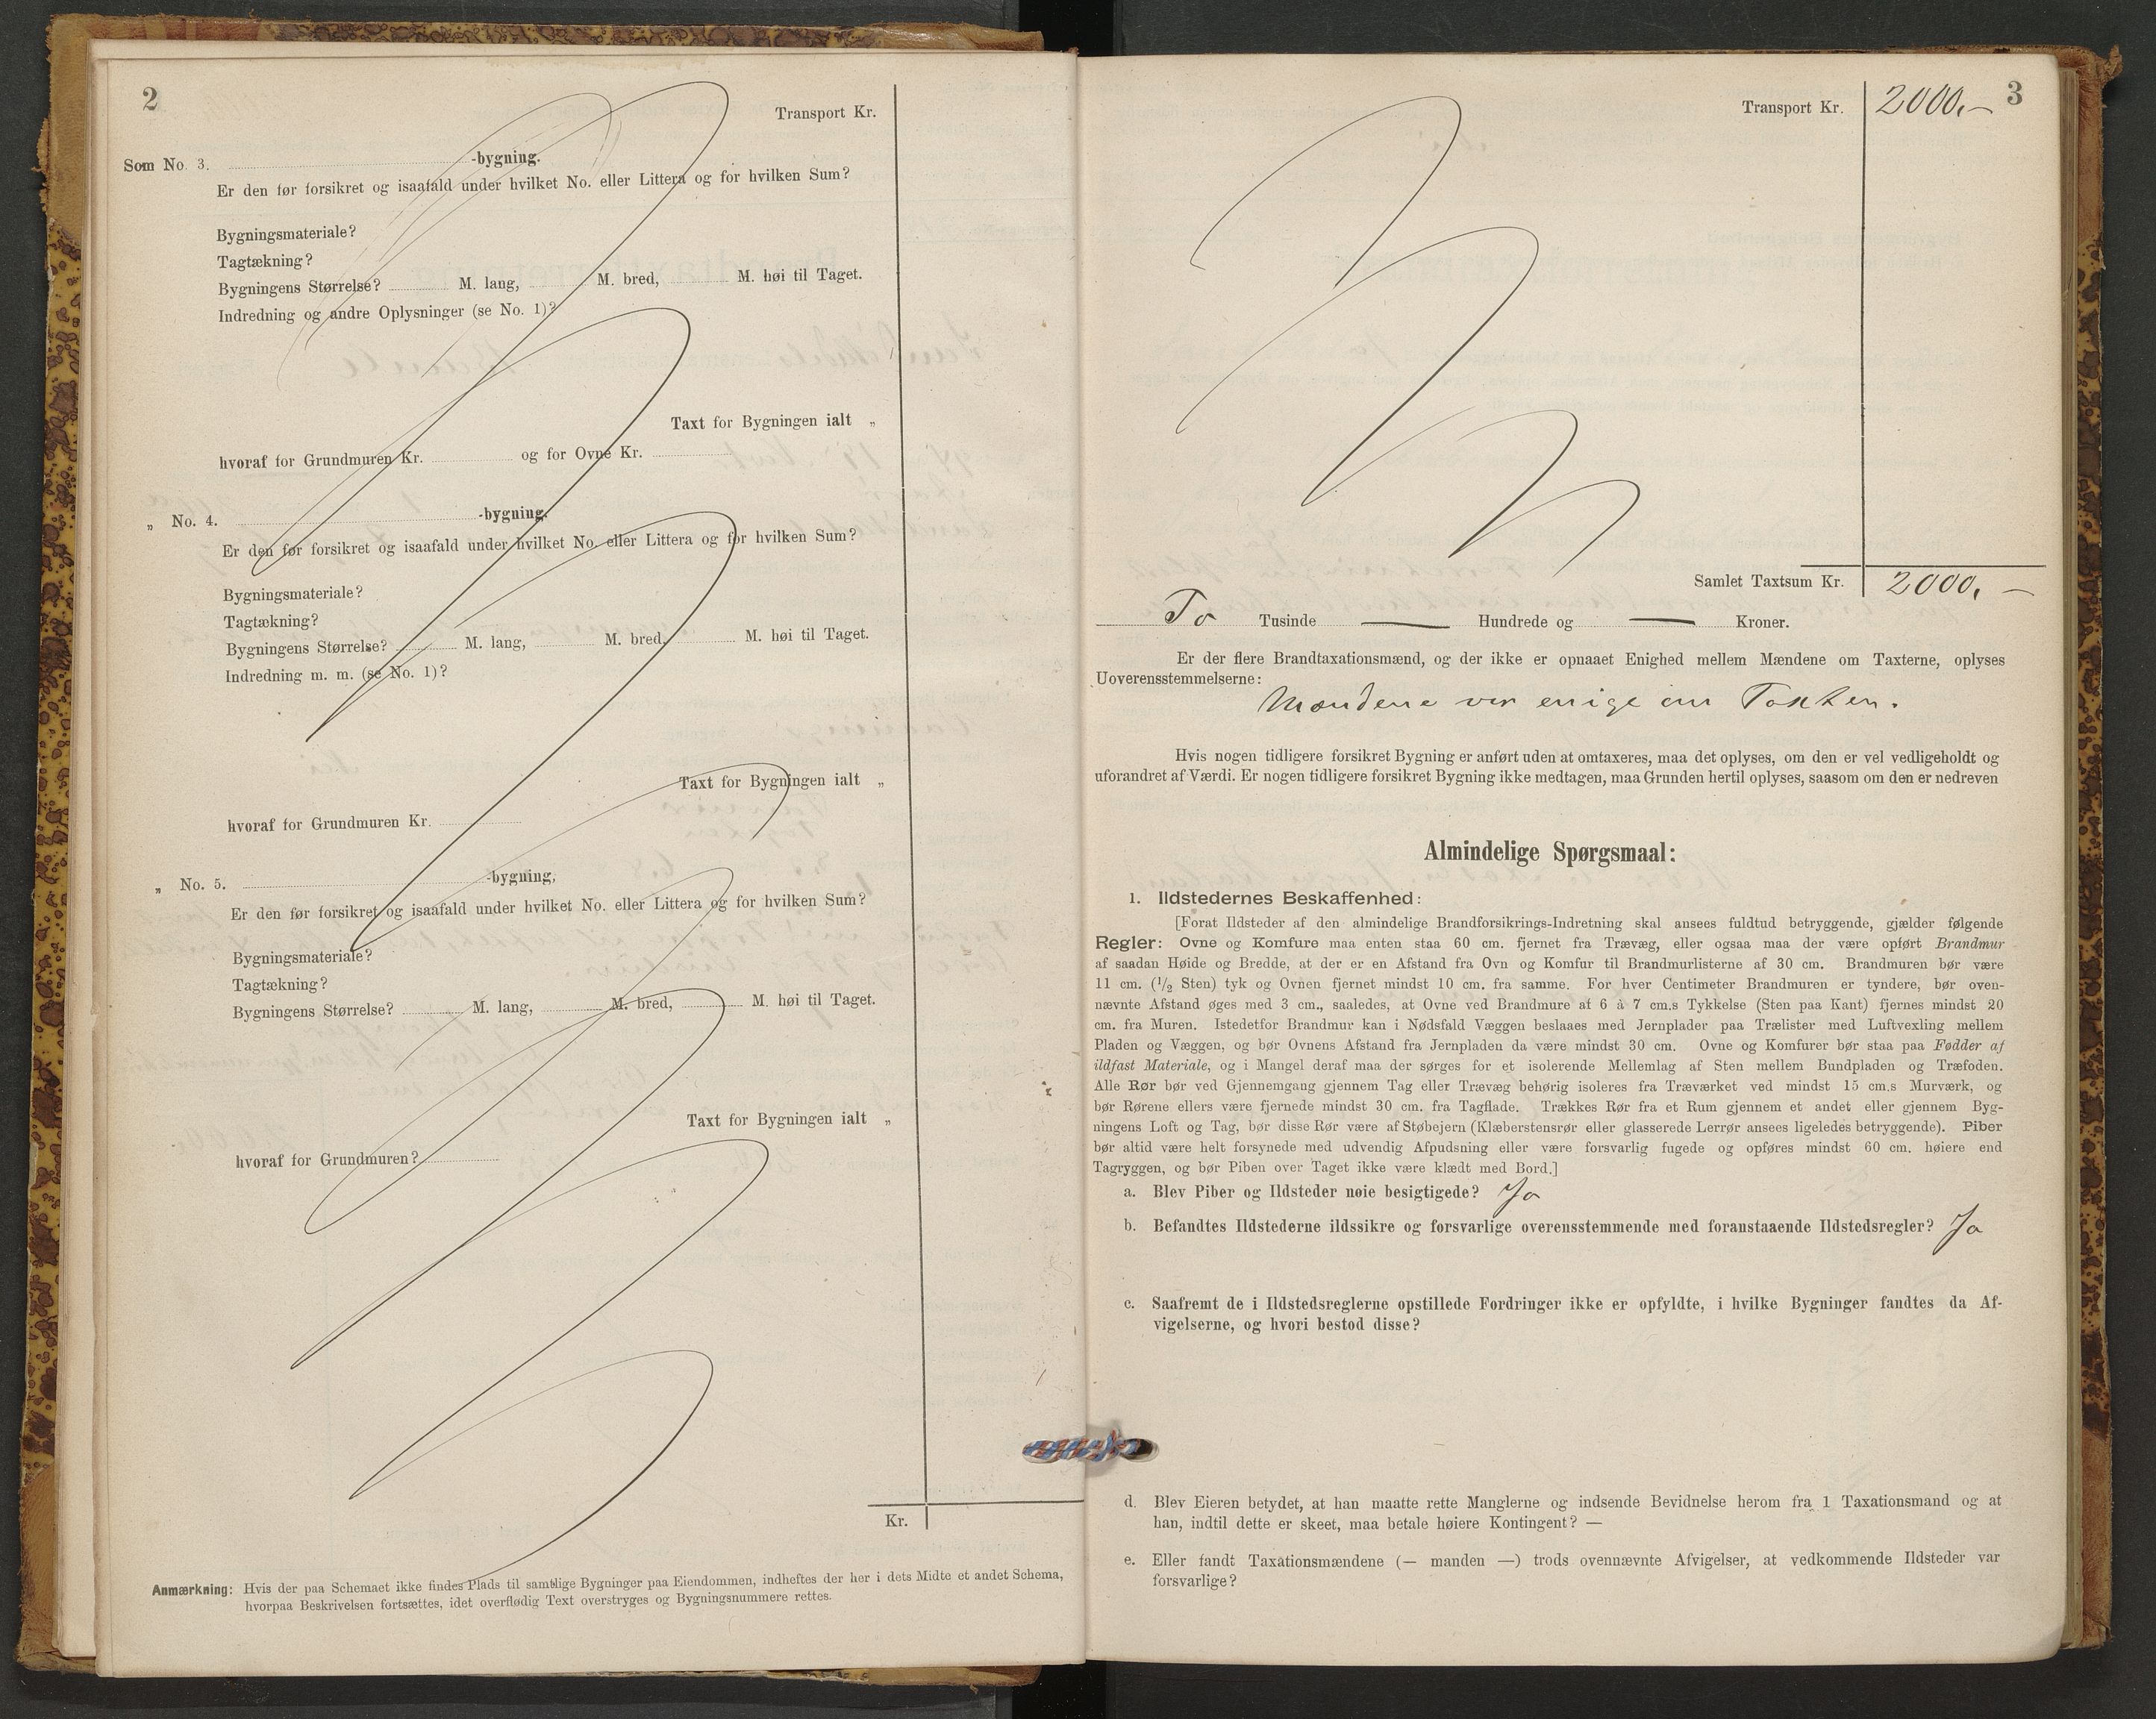 2
Transport Kr.
Som No. 3. -bygning.
Er den før forsikret og isaafald under hvilket No. eller Littera og for hvilken Sum?
Bygningsmateriale?
Tagtækning?
Bygningens Størrelse? M. lang, M. bred, M. høi til Taget.
Indredning og andre Oplysninger (se No. 1)?
Taxt for Bygningen ialt „
hvoraf for Grundmuren Kr. og for Ovne Kr.
„ No. 4. -bygning.
Er den før forsikret og isaafald under hvilket No. eller Littera og for hvilken Sum?
Bygningsmateriale?
Tagtækning?
Bygningens Størrelse? M. lang, M. bred, M. høi til Taget.
Indredning m. m. (se No. 1)?
Taxt for Bygningen ialt „
hvoraf for Grundmuren Kr.
„ No. 5. -bygning,
Er den før forsikret og isaafald under hvilket No. eller Littera og for hvilken Sum?
Bygningsmateriale?
Tagtækning?
Bygningens Størrelse? M. lang, M. bred, M. høi til Taget.
Taxt for Bygningen ialt „
hvoraf for Grundmuren?
Kr.
Anmærkning: Hvis der paa Schemaet ikke findes Plads til samtlige Bygninger paa Eiendommen, indheftes der her i dets Midte et andet Schema,
hvorpaa Beskrivelsen fortsættes, idet overflødig Text overstryges og Bygningsnummere rettes.
3
Transport Kr. 2000.—
Samlet Taxtsum Kr. 2000. —
To Tusinde — Hundrede og — Kroner.
Er der flere Brandtaxationsmænd, og der ikke er opnaaet Enighed mellem Mændene om Taxterne, oplyses
Uoverensstemmelserne:
Mændene var enige om Taxten.
Hvis nogen tidligere forsikret Bygning er anført uden at omtaxeres, maa det oplyses, om den er vel vedligeholdt og
uforandret af Værdi. Er nogen tidligere forsikret Bygning ikke medtagen, maa Grunden hertil oplyses, saasom om den er nedreven
Almindelige Spørgsmaal:
1. Ildstedernes Beskaffenhed:
[Forat Ildsteder af den almindelige Brandforsikrings-Indretning skal ansees fuldtud betryggende, gjælder følgende
Regler: Ovne og Komfure maa enten staa 60 cm. fjernet fra Trævæg, eller ogsaa maa der være opført Brandmur
af saadan Høide og Bredde, at der er en Afstand fra Ovn og Komfur til Brandmurlisterne af 30 cm. Brandmuren bør være
11 cm. (1/2 Sten) tyk og Ovnen fjernet mindst 10 cm. fra samme. For hver Centimeter Brandmuren er tyndere, bør oven-
nævnte Afstand øges med 3 cm., saaledes, at Ovne ved Brandmure af 6 à 7 cm.s Tykkelse (Sten paa Kant) fjernes mindst 20
cm. fra Muren. Istedetfor Brandmur kan i Nødsfald Væggen beslaaes med Jernplader paa Trælister med Luftvexling mellem
Pladen og Væggen, og bør Ovnens Afstand fra Jernpladen da være mindst 30 cm. Ovne og Komfurer bør staa paa Fødder af
ildfast Materiale, og i Mangel deraf maa der sørges for et isolerende Mellemlag af Sten mellem Bundpladen og Træfoden.
Alle Rør bør ved Gjennemgang gjennem Tag eller Trævæg behørig isoleres fra Træværket ved mindst 15 cm.s Murværk, og
bør Rørene ellers være fjernede mindst 30 cm. fra Tagflade. Trækkes Rør fra et Rum gjennem et andet eller gjennem Byg-
ningens Loft og Tag, bør disse Rør være af Støbejern (Klæberstensrør eller glasserede Lerrør ansees ligeledes betryggende). Piber
bør altid være helt forsynede med udvendig Afpudsning eller være forsvarlig fugede og opføres mindst 60 cm. høiere end
Tagryggen, og bør Piben over Taget ikke være klædt med Bord.]
a. Blev Piber og Ildsteder nøie besigtigede? Ja
b. Befandtes Ildstederne ildssikre og forsvarlige overensstemmende med foranstaaende Ildstedsregler? Ja
c. Saafremt de i Ildstedsreglerne opstillede Fordringer ikke er opfyldte, i hvilke Bygninger fandtes da Af-
vigelserne, og hvori bestod disse?
d. Blev Eieren betydet, at han maatte rette Manglerne og indsende Bevidnelse herom fra 1 Taxationsmand og at
han, indtil dette er skeet, maa betale høiere Kontingent? —
e. Eller fandt Taxationsmændene (— manden —) trods ovennævnte Afvigelser, at vedkommende Ildsteder var
forsvarlige?